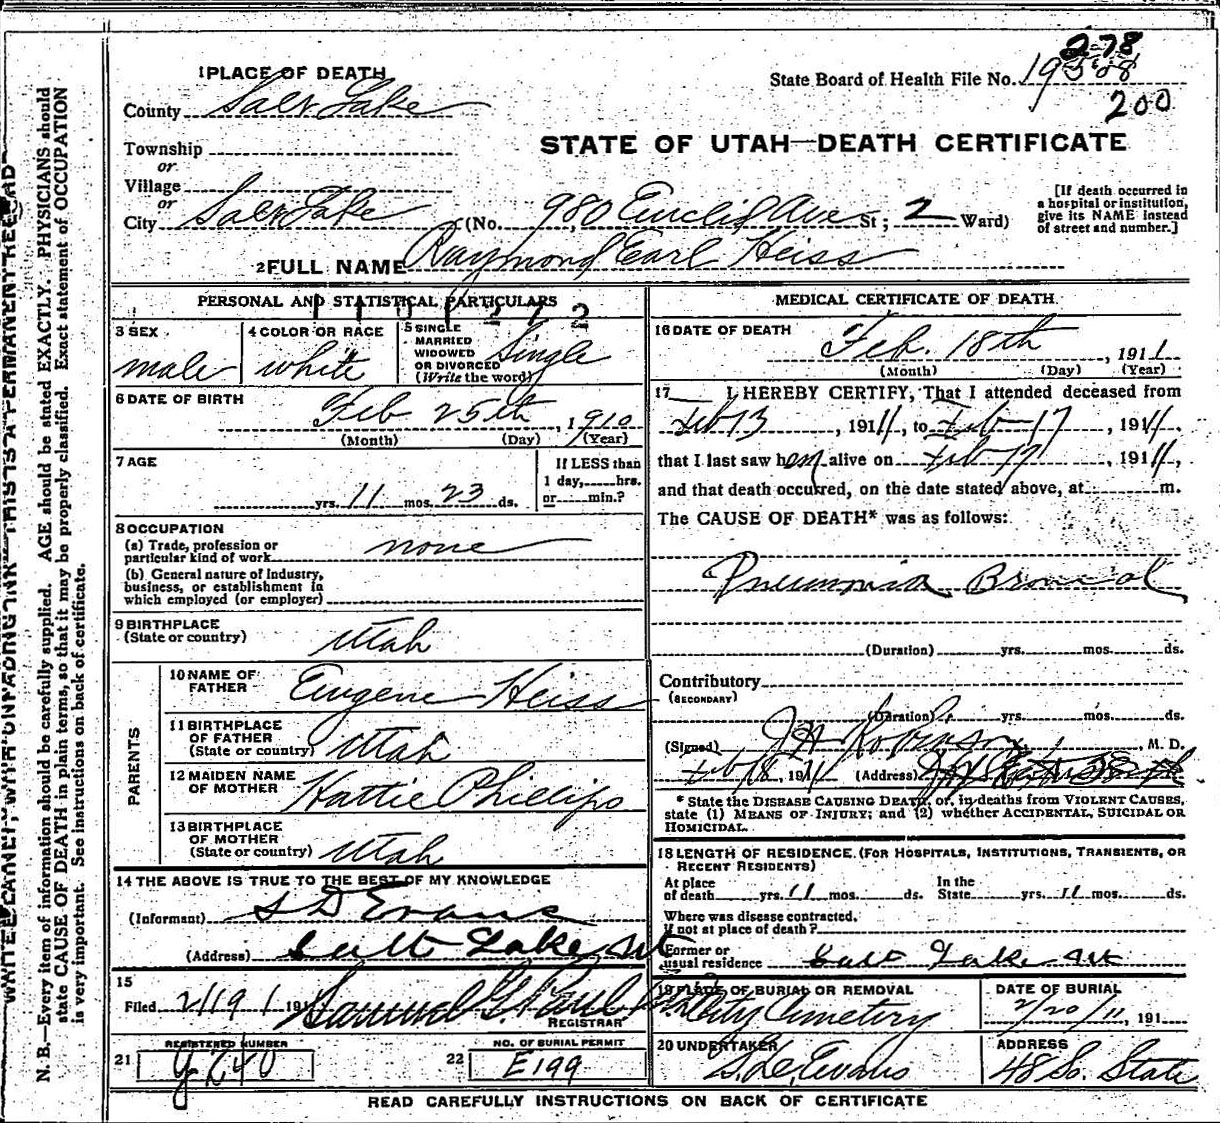 278
State Board of Health File No. 19
200
1 PLACE OF DEATH
County Salt Lake
STATE OF UTAH—DEATH CERTIFICATE
Township
or
Village
or
City Salt Lake (No. 980 Euclid Ave St; 2 Ward)
[If death occurred in
a hospital or institution,
give its NAME instead
of street and number.]
2 FULL NAME Raymond Earl Heiss
PERSONAL AND STATISTICAL PARTICULARS
3 SEX
male
4 COLOR OR RACE
white
5 SINGLE
MARRIED
WIDOWED
OR DIVORCED
(Write the word)
Single
6 DATE OF BIRTH
Feb 25th, 1910
(Month) (Day) (Year)
7 AGE
yrs. 11 mos. 23 ds.
If LESS than
1 day, hrs.
or min.?
8 OCCUPATION
(a) Trade, profession or
particular kind of work none
(b) General nature of Industry,
business, or establishment in
which employed (or employer)
9 BIRTHPLACE
(State or country) Utah
PARENTS
10 NAME OF
FATHER Eugene Heiss
11 BIRTHPLACE
OF FATHER
(State or country) Utah
12 MAIDEN NAME
OF MOTHER Hattie Phillips
13 BIRTHPLACE
OF MOTHER
(State or country) Utah
14 THE ABOVE IS TRUE TO THE BEST OF MY KNOWLEDGE
(Informant) S D Evans
(Address) Salt Lake, Ut
15
Filed 2/19 191
Samuel G. Paul
REGISTRAR
REGISTERED NUMBER
21
NO. OF BURIAL PERMIT
22 E199
MEDICAL CERTIFICATE OF DEATH
16 DATE OF DEATH
Feb. 18th, 1911
(Month) (Day) (Year)
17 I HEREBY CERTIFY, That I attended deceased from
Feb 13, 1911, to Feb 17, 1911,
that I last saw him alive on Feb 17, 1911,
and that death occurred, on the date stated above, at m.
The CAUSE OF DEATH* was as follows:
Pneumonia Broncial
(Duration) yrs. mos. ds.
Contributory
(SECONDARY)
(Duration) yrs. mos. ds.
(Signed) J H Robinson, M. D.
Feb 18, 1911 (Address)
* State the DISEASE CAUSING DEATH, or, in deaths from VIOLENT CAUSES,
state (1) MEANS OF INJURY; and (2) whether ACCIDENTAL, SUICIDAL OR
HOMICIDAL.
18 LENGTH OF RESIDENCE. (FOR HOSPITALS, INSTITUTIONS, TRANSIENTS, OR
RECENT RESIDENTS)
At place
of death yrs. 11 mos. ds.
In the
State yrs. 11 mos. ds.
Where was disease contracted,
if not at place of death?
Former or
usual residence Salt Lake Ut
19 PLACE OF BURIAL OR REMOVAL
City Cemetery
DATE OF BURIAL
2/20/11, 191
20 UNDERTAKER
S. D. Evans
ADDRESS
48 So. State
READ CAREFULLY INSTRUCTIONS ON BACK OF CERTIFICATE
WRITE PLAINLY, WITH UNFADING INK—THIS IS A PERMANENT RECORD
N. B.—Every item of information should be carefully supplied. AGE should be stated EXACTLY. PHYSICIANS should
state CAUSE OF DEATH in plain terms, so that it may be properly classified. Exact statement of OCCUPATION
is very important. See instructions on back of certificate.